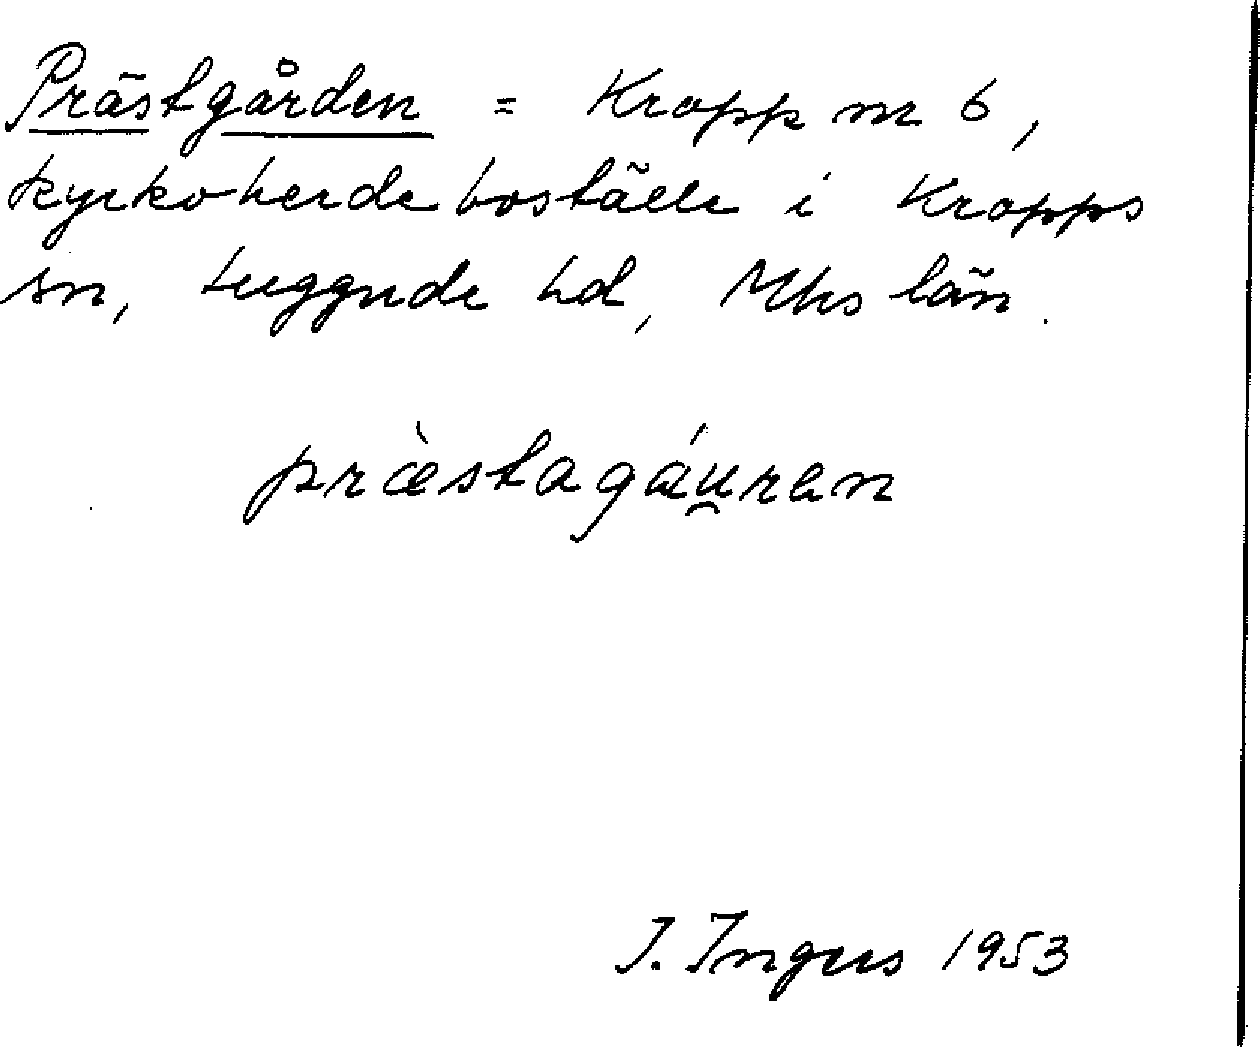 Prästgården = Kropp nr 6,
kyrkoherdeboställe i Kropps
sn, Luggude hd, Mhs län.
præ̀stagáu̯ren
I. Ingers 1953